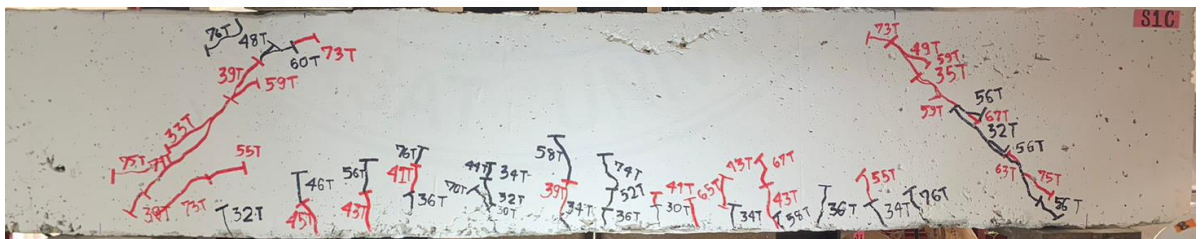 S1C
76T
48T
60T
73T
39T
59T
33T
75T
55T
39T
73T
32T
46T
45T
56T
43T
76T
41T
36T
34T
32T
30T
58T
39T
34T
74T
52T
36T
41T
30T
65T
43T
67T
34T
43T
58T
36T
55T
34T
46T
73T
49T
59T
35T
59T
56T
67T
32T
56T
63T
75T
56T